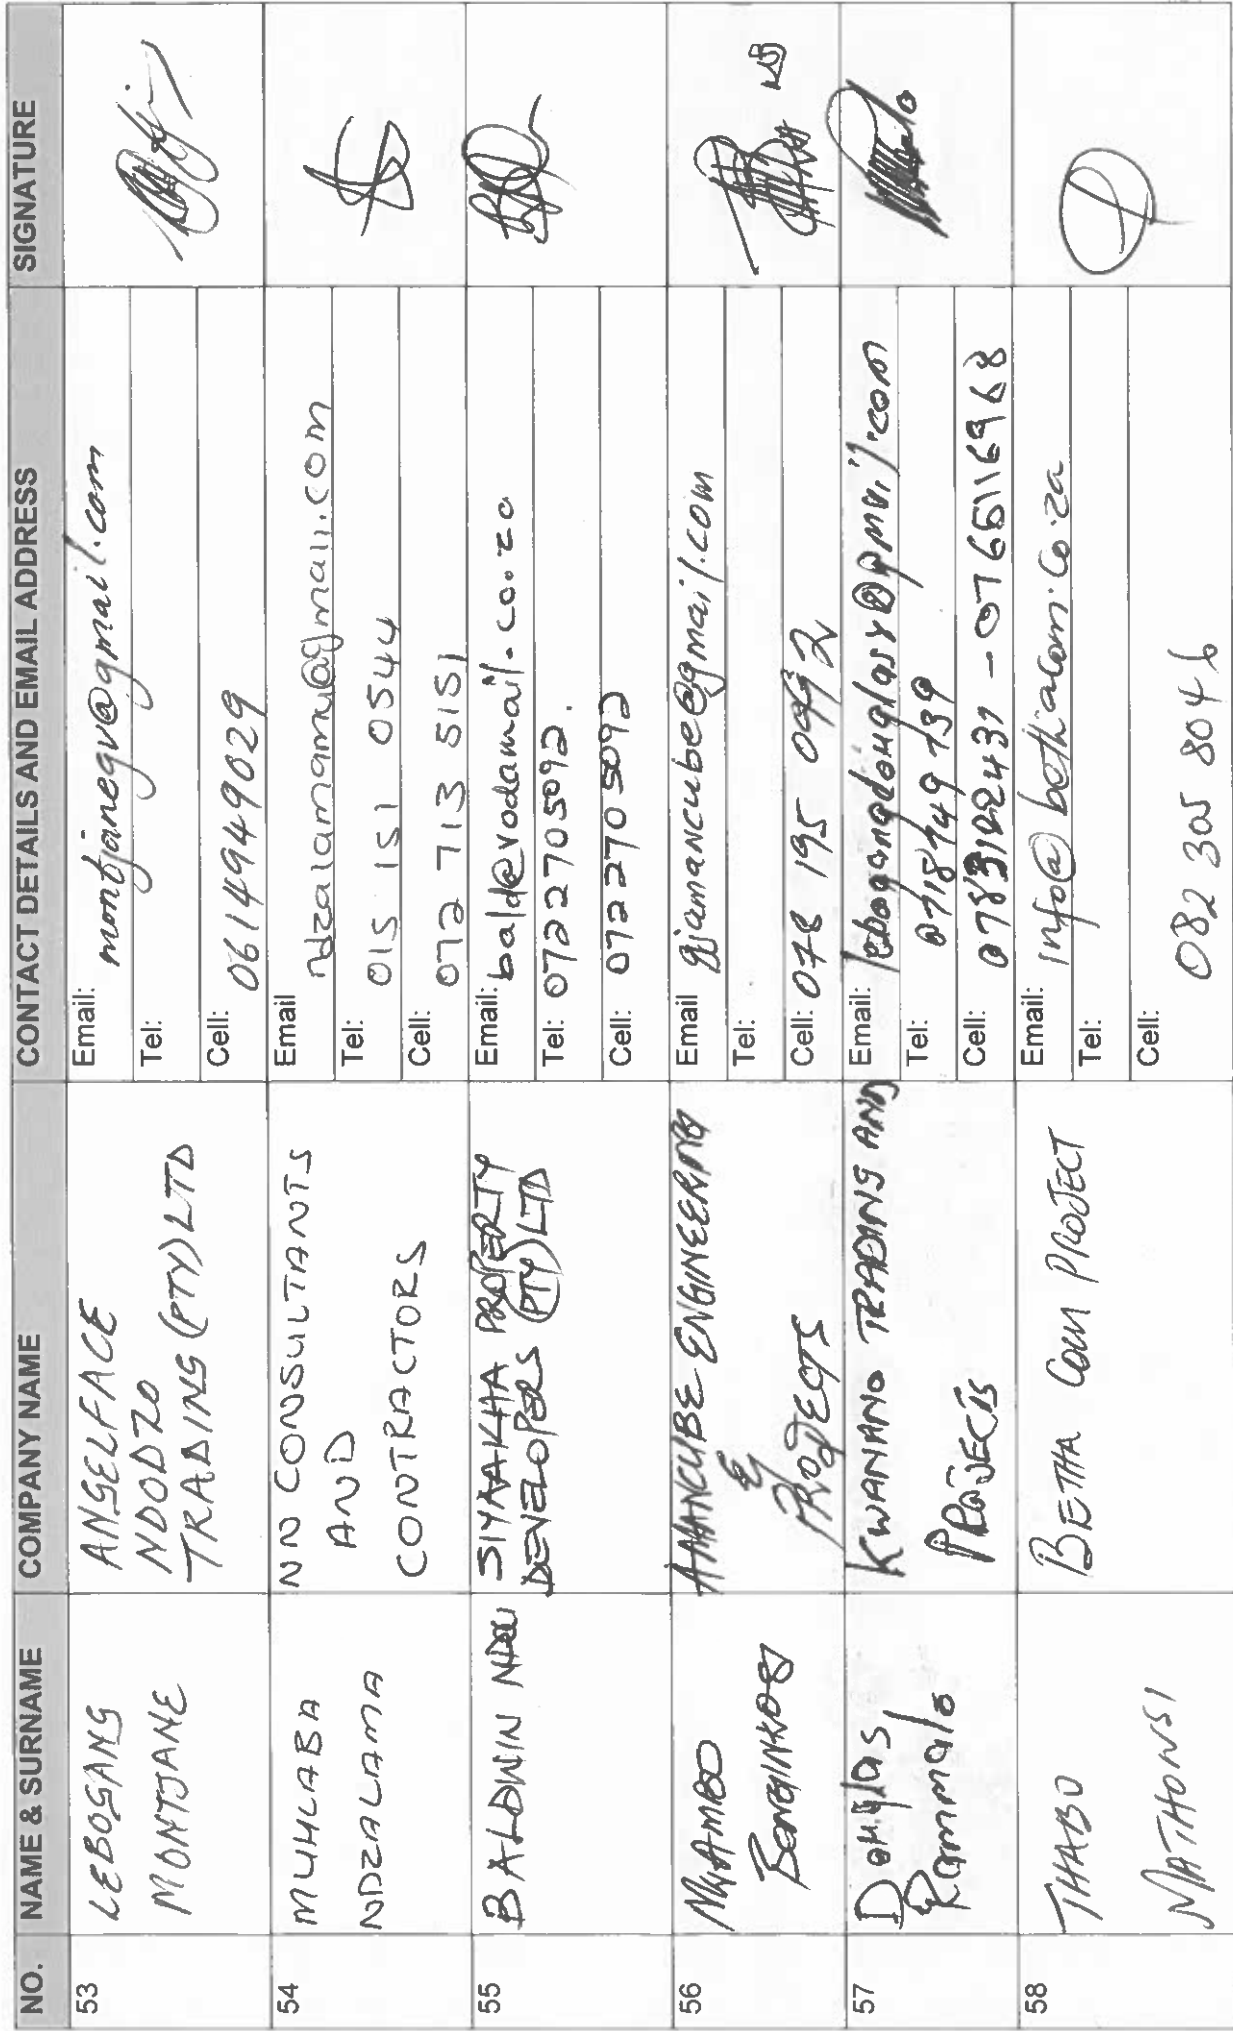 NO. NAME & SURNAME COMPANY NAME CONTACT DETAILS AND EMAIL ADDRESS SIGNATURE
53
LEBOGANG
MONTJANE
ANGELFACE
NDODZO
TRADING (PTY) LTD
Email: montjanegv@gmail.com
Tel:
Cell: 0614949029
54
MUHLABA
NDZALAMA
NN CONSULTANTS
AND
CONTRACTORS
Email ndzalamamu@gmail.com
Tel: 015 151 0544
Cell: 072 713 5151
55
BALDWIN
SIYAAKHA PROPERTY
DEVELOPERS (PTY) LTD
Email: bald@vodamail.co.za
Tel: 0722705092.
Cell: 0722705092
56
BONGINKOSI
AMANCUBE ENGINEERING
&
PROJECTS
Email gjamancube@gmail.com
Tel:
Cell: 078 195 0992
57
Douglas
Rammalo
KWANANO TRADING AND
PROJECTS
Email: lebogangdouglasy@gmail.com
Tel:
Cell: - 0766116968
58
THABO
MATHONSI
BETHA COM PROJECT
Email: info@bethacom.co.za
Tel:
Cell:
082 305 8046